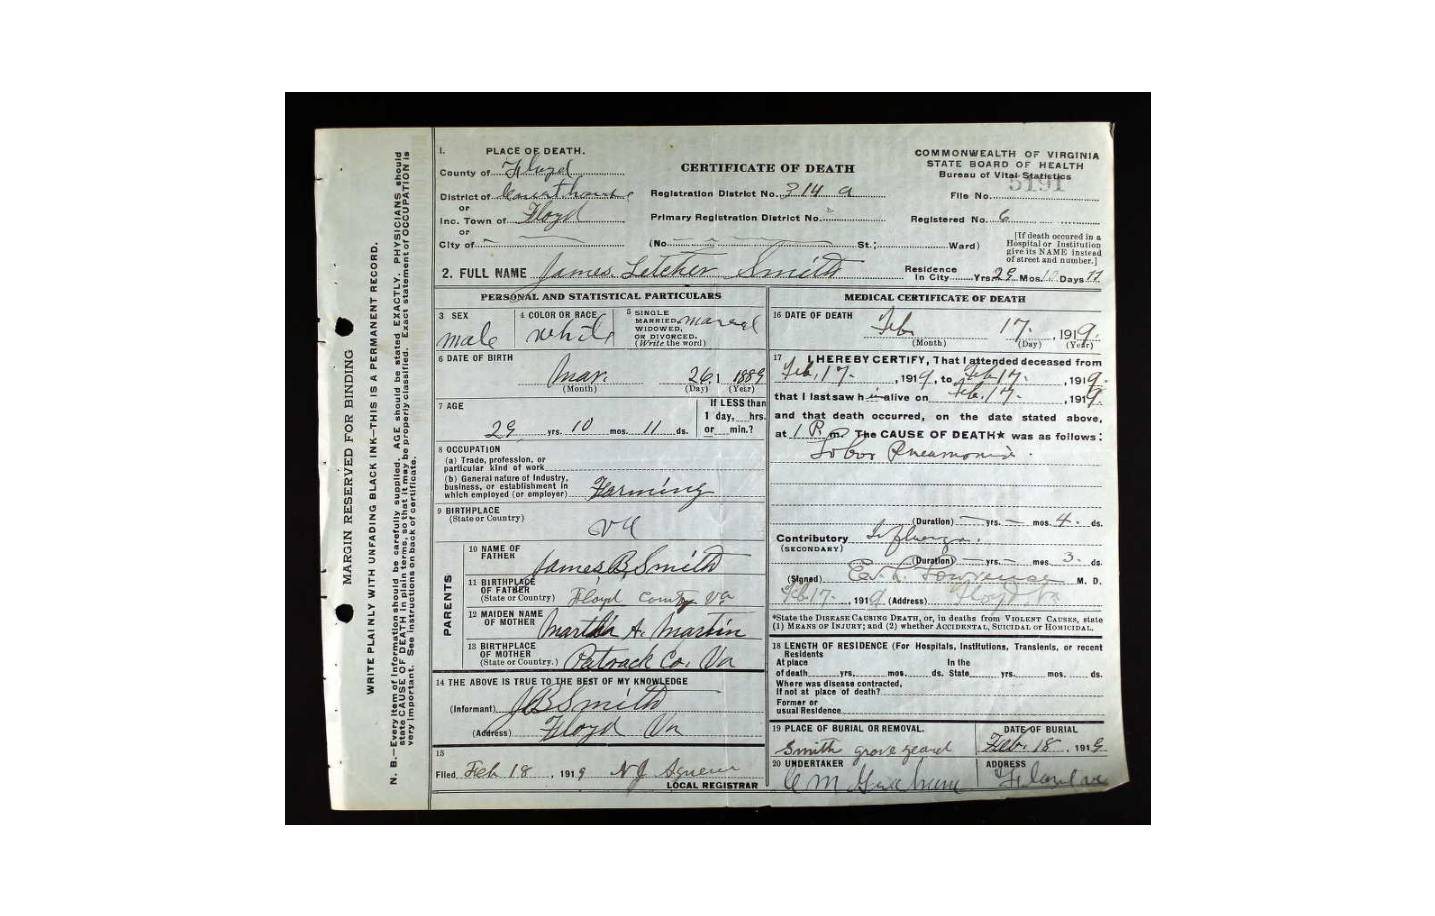 MARGIN RESERVED FOR BINDING
WRITE PLAINLY WITH UNFADING BLACK INK—THIS IS A PERMANENT RECORD.
N. B.—Every item of information should be carefully supplied. AGE should be stated EXACTLY. PHYSICIANS should
state CAUSE OF DEATH in plain terms, so that it may be properly classified. Exact statement of OCCUPATION is
very important. See instructions on back of certificate.
1. PLACE OF DEATH.
County of Floyd
District of Courthouse
or
Inc. Town of Floyd
or
City of
CERTIFICATE OF DEATH
Registration District No. 314 a
Primary Registration District No.
(No. St.; Ward)
COMMONWEALTH OF VIRGINIA
STATE BOARD OF HEALTH
Bureau of Vital Statistics
File No. 5191
Registered No. 6
[If death occured in a
Hospital or Institution
give its NAME instead
of street and number.]
2. FULL NAME James Letcher Smith
Residence In City Yrs. 29 Mos. 10 Days
PERSONAL AND STATISTICAL PARTICULARS
3 SEX
male
4 COLOR OR RACE
white
5 SINGLE
MARRIED,
WIDOWED,
OR DIVORCED.
(Write the word)
6 DATE OF BIRTH
Mar. 26, 1889
(Month) (Day) (Year)
7 AGE
29 yrs. 10 mos. 11 ds.
If LESS than
1 day, hrs.
or min.?
8 OCCUPATION
(a) Trade, profession, or
particular kind of work
(b) General nature of industry,
business, or establishment in
which employed (or employer) Farming
9 BIRTHPLACE
(State or Country)
Va
PARENTS
10 NAME OF
FATHER James B. Smith
11 BIRTHPLACE
OF FATHER
(State or Country) Floyd County Va
12 MAIDEN NAME
OF MOTHER Martha A. Martin
13 BIRTHPLACE
OF MOTHER
(State or Country.) Patrack Co. Va
14 THE ABOVE IS TRUE TO THE BEST OF MY KNOWLEDGE
(Informant) J B Smith
(Address) Floyd Va
15
Filed Feb 18, 1919 N J Agnew
LOCAL REGISTRAR
MEDICAL CERTIFICATE OF DEATH
16 DATE OF DEATH
Feb. 17. , 1919.
(Month) (Day) (Year)
17 I HEREBY CERTIFY, That I attended deceased from
Feb. 17. , 1919, to Feb 17. , 1919.
that I last saw him alive on Feb. 17. , 1919
and that death occurred, on the date stated above,
at 1 P. m. The CAUSE OF DEATH★ was as follows:
Lobar Pneumonia.
(Duration) — yrs. — mos. 4. ds.
Contributory Influenza.
(SECONDARY)
(Duration) — yrs. — mos. 3. ds.
(Signed) M. D.
Feb. 17. 1919 (Address) Floyd, Va
*State the DISEASE CAUSING DEATH, or, in deaths from VIOLENT CAUSES, state
(1) MEANS OF INJURY; and (2) whether ACCIDENTAL, SUICIDAL or HOMICIDAL.
18 LENGTH OF RESIDENCE (For Hospitals, Institutions, Transients, or recent
Residents
At place In the
of death yrs. mos. ds. State yrs. mos. ds.
Where was disease contracted,
If not at place of death?
Former or
usual Residence
19 PLACE OF BURIAL OR REMOVAL.
Smith grove yeard
DATE OF BURIAL
Feb. 18. 1919
20 UNDERTAKER
C M
ADDRESS